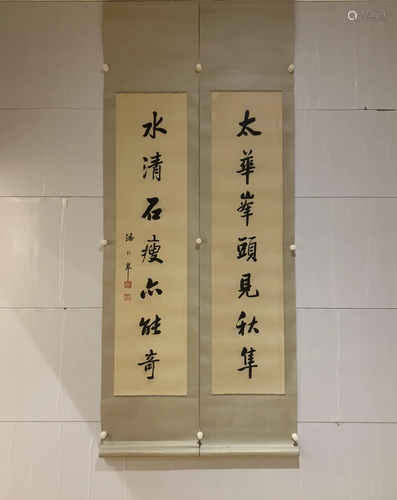 太華峯頭見秋隼
水清石瘦亦能奇
潘齡皋